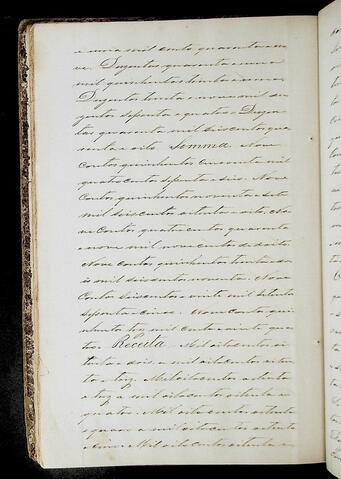 e nova mil cento quarenta e no
ve. Duzentos quarenta e nove
mil quinhentos trinta e nove.
Duzentos trinta e nove mil du
zentos setenta e quatro. Duzen
tos quarenta mil seiscentos qua
renta e oito. Somma. Nove
Contos quinhentos cincoenta mil
quatrocentos setenta e seis. Nove
Contos quinhentos noventa e sete
mil seiscentos oitenta e oito. No
ve Contos quatrocentos quarenta
e nove mil novecentos dezoito.
Nove contos quinhentos trinta e do
is mil seiscentos noventa. Nove
Contos seiscentos e vinte mil
setenta e cinco. Nove Contos qui
nhentos trez mil cento e vinte qua
tro. Receita. Mil oitocentos oi
tenta e dois, a mil oitocentos oiten
ta e trez. Mil oitocentos oitenta
e trez a mil oitocentos oitenta e
quatro. Mil oitocentos oitenta
e quatro a mil oitocentos oitenta
e cinco. Mil oitocentos oitenta e